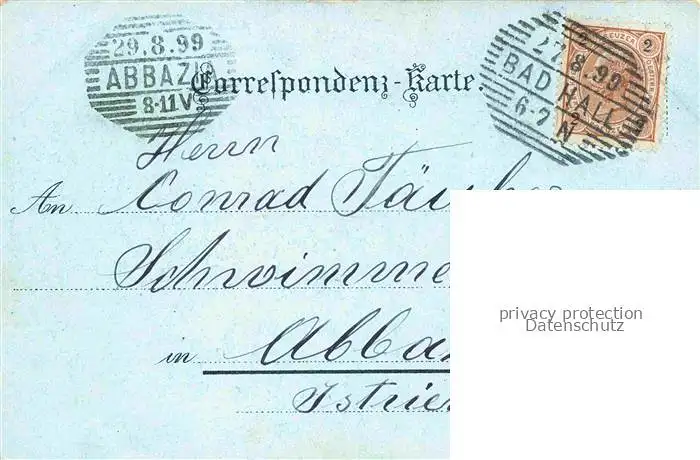 29.8.99
ABBAZIA
8-11V
Correspondenz-Karte.
2 KREUZER 2
27.8.99
BAD HALL
6-7N
Herrn
An Conrad
Schwimme
in Abba
Istrie
privacy protection
Datenschutz